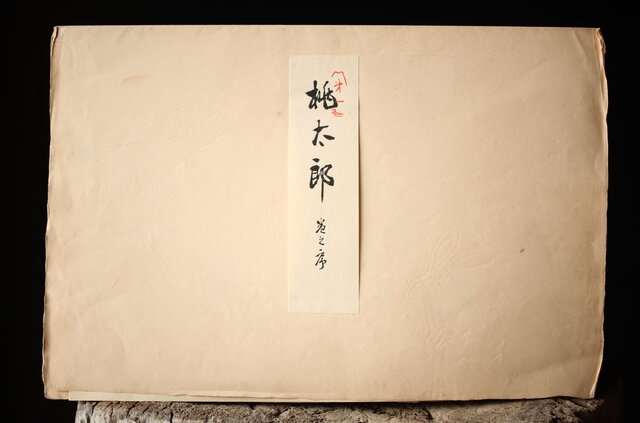 桃太郎
巻之序